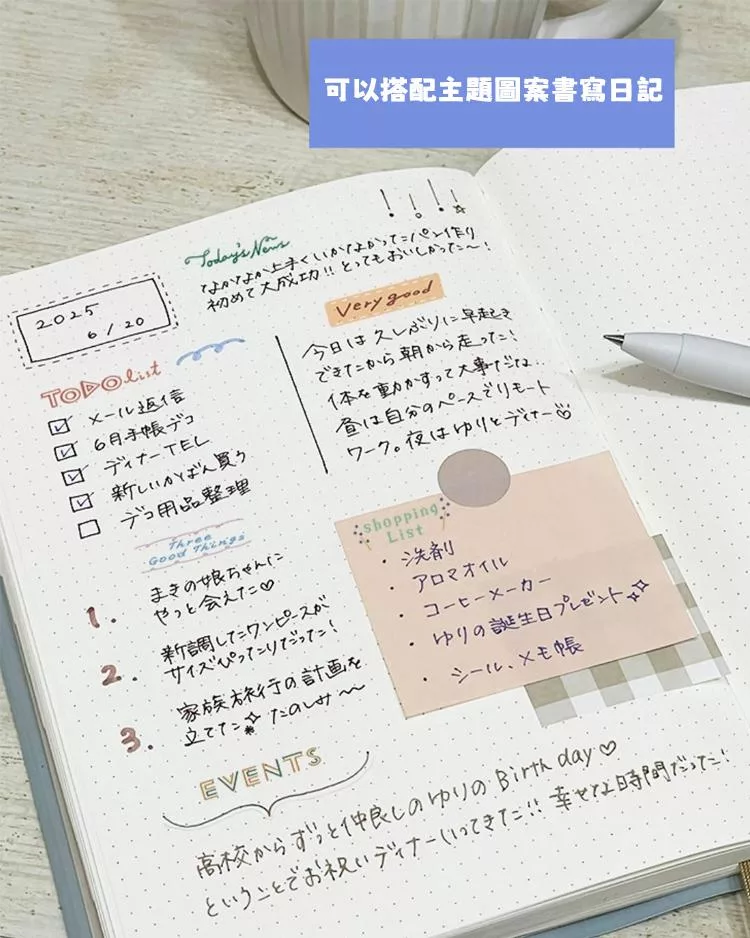 可以搭配主題圖案書寫日記
Today's News
なかなか上手くいかなかったパン作り
初めて大成功!! とってもおいしかった〜!
2025
6/20
Very good
今日は久しぶりに早起き
できたから朝から走った!
体を動かすって大事だな..
昼は自分のペースでリモート
ワーク。夜はゆりとディナー♡
TODO list
☑ メール返信
☑ 6月手帳デコ
☑ ディナーTEL
☑ 新しいかばん買う
☐ デコ用品整理
Three
Good Things
1. まきの娘ちゃんに
やっと会えた♡
2. 新調したワンピースが
サイズぴったりだった!
3. 家族旅行の計画を
立てた たのしみ〜〜
shopping
List
・洗剤
・アロマオイル
・コーヒーメーカー
・ゆりの誕生日プレゼント
・シール、メモ帳
EVENTS
高校からずっと仲良しのゆりのBirthday♡
ということでお祝いディナーしいってきた!! 幸せな時間だった!